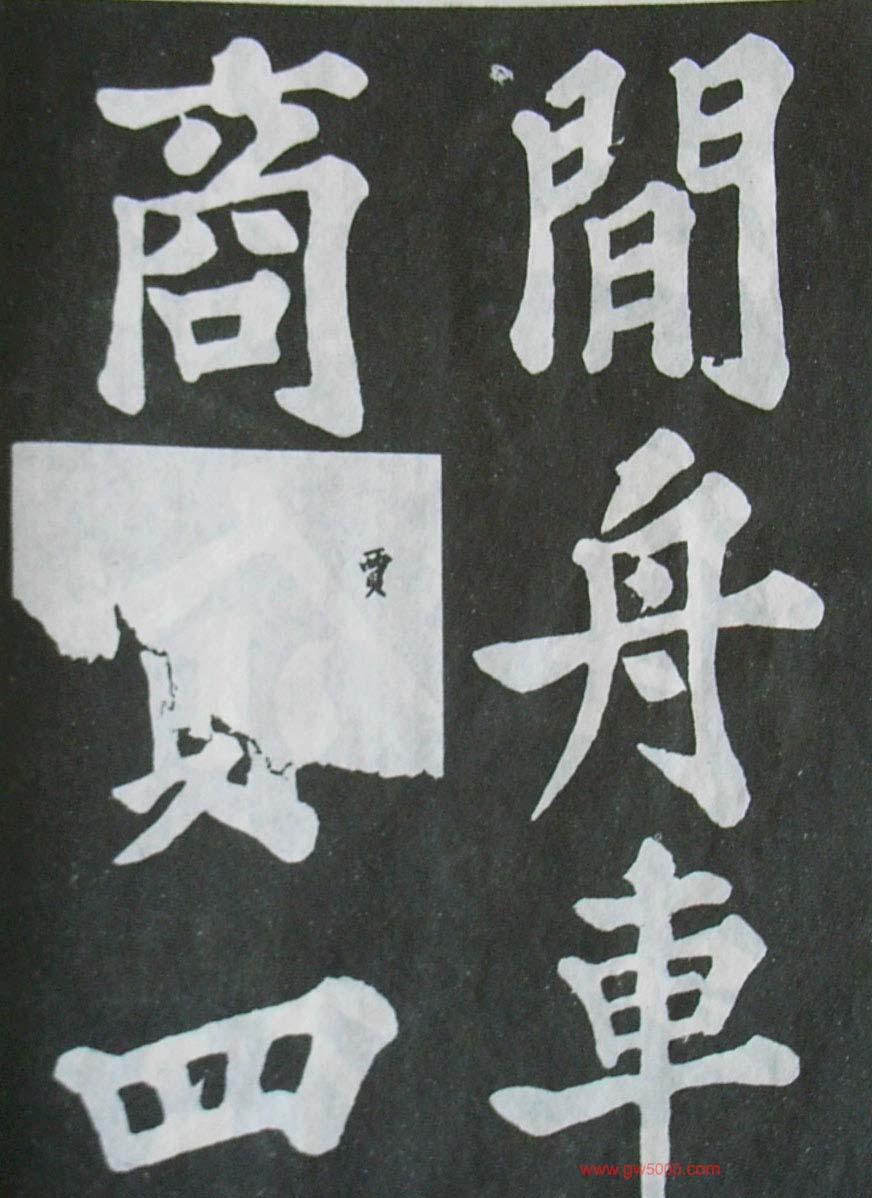 閒舟車
商賈四
賈
www.gw5000.com